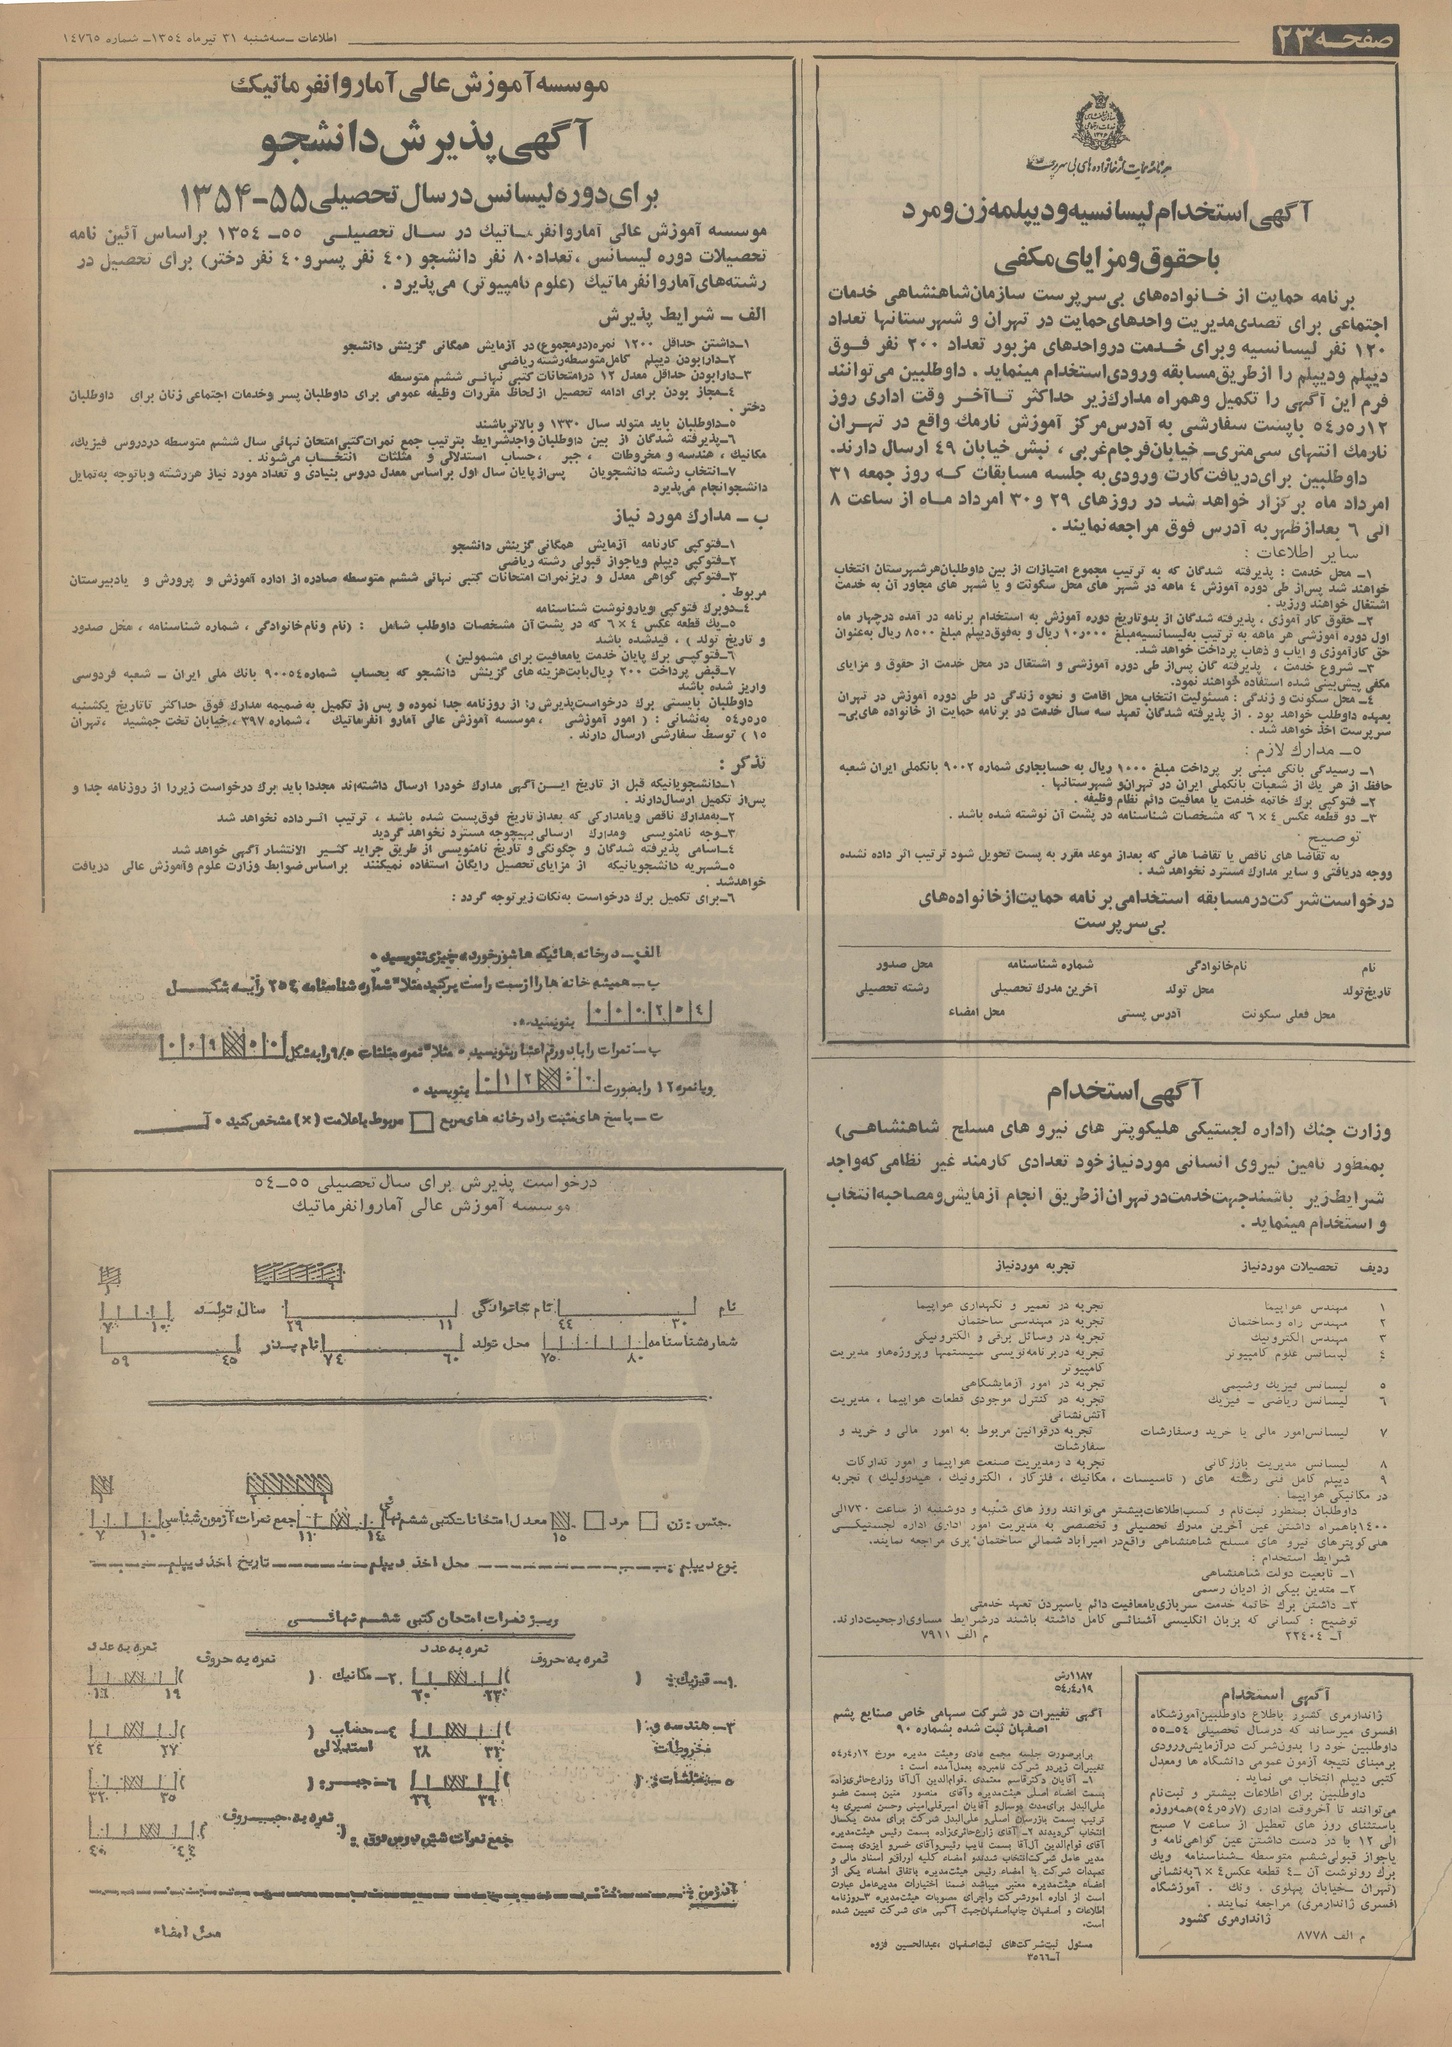 صفحه ۲۳
اطلاعات ـ سه‌شنبه ۳۱ تیرماه ۱۳۵۴ـ شماره ۱۴۷۶۵
برنامه حمایت از خانواده‌های بی سرپرست
آگهی استخدام لیسانسیه و دیپلمه زن و مرد
با حقوق و مزایای مکفی
برنامه حمایت از خانواده‌های بی‌سرپرست سازمان شاهنشاهی خدمات
اجتماعی برای تصدی مدیریت واحدهای حمایت در تهران و شهرستانها تعداد
۱۲۰ نفر لیسانسیه و برای خدمت در واحدهای مزبور تعداد ۲۰۰ نفر فوق
دیپلم و دیپلم را از طریق مسابقه ورودی استخدام مینماید . داوطلبین می‌توانند
فرم این آگهی را تکمیل و همراه مدارک زیر حداکثر تا آخر وقت اداری روز
۱۲ر۵ر۵۴ با پست سفارشی به آدرس مرکز آموزش نارمک واقع در تهران
نارمک انتهای سی‌متری ـ خیابان فرجام غربی ، نبش خیابان ۴۹ ارسال دارند.
داوطلبین برای دریافت کارت ورودی به جلسه مسابقات که روز جمعه ۳۱
امرداد ماه برگزار خواهد شد در روزهای ۲۹ و ۳۰ امرداد ماه از ساعت ۸
الی ۶ بعدازظهر به آدرس فوق مراجعه نمایند .
سایر اطلاعات :
۱ـ محل خدمت : پذیرفته شدگان که به ترتیب مجموع امتیازات از بین داوطلبان هر شهرستان انتخاب
خواهند شد پس از طی دوره آموزش ۴ ماهه در شهر های محل سکونت و یا شهر های مجاور آن به خدمت
اشتغال خواهند ورزید .
۲ـ حقوق کار آموزی . پذیرفته شدگان از بدو تاریخ دوره آموزش به استخدام برنامه در آمده در چهار ماه
اول دوره آموزشی هر ماهه به ترتیب به لیسانسیه مبلغ ۱۰ر۰۰۰ ریال و به فوق دیپلم مبلغ ۸۵۰۰ ریال به‌عنوان
حق کارآموزی و ایاب و ذهاب پرداخت خواهد شد.
۳ـ شروع خدمت ، پذیرفته گان پس از طی دوره آموزشی و اشتغال در محل خدمت از حقوق و مزایای
مکفی پیش‌بینی شده استفاده خواهند نمود.
۴ـ محل سکونت و زندگی : مسئولیت انتخاب محل اقامت و نحوه زندگی در طی دوره آموزش در تهران
بعهده داوطلب خواهد بود . از پذیرفته شدگان تعهد سه سال خدمت در برنامه حمایت از خانواده های بی‌ـ
سرپرست اخذ خواهد شد .
۵ـ مدارک لازم :
۱ـ رسیدگی بانکی مبنی بر پرداخت مبلغ ۱۰۰۰ ریال به حسابجاری شماره ۹۰۰۲ بانک‌ملی ایران شعبه
حافظ از هر یک از شعبات بانک‌ملی ایران در تهران و شهرستانها .
۲ـ فتوکپی برگ خاتمه خدمت یا معافیت دائم نظام وظیفه .
۳ـ دو قطعه عکس ۴ × ۶ که مشخصات شناسنامه در پشت آن نوشته شده باشد .
توضیح :
به تقاضا های ناقص یا تقاضا هائی که بعد از موعد مقرر به پست تحویل شود ترتیب اثر داده نشده
ووجه دریافتی و سایر مدارک مسترد نخواهد شد .
درخواست شرکت در مسابقه استخدامی برنامه حمایت از خانواده‌های
بی سرپرست
نام نام خانوادگی شماره شناسنامه محل صدور
تاریخ تولد محل تولد آخرین مدرک تحصیلی رشته تحصیلی
محل فعلی سکونت آدرس پستی محل امضاء
آگهی استخدام
وزارت جنگ (اداره لجستیکی هلیکوپتر های نیرو های مسلح شاهنشاهی)
بمنظور تامین نیروی انسانی مورد نیاز خود تعدادی کارمند غیر نظامی که واجد
شرایط زیر باشند جهت خدمت در تهران از طریق انجام آزمایش و مصاحبه انتخاب
و استخدام مینماید .
ردیف تحصیلات موردنیاز تجربه موردنیاز
۱ مهندس هواپیما تجربه در تعمیر و نگهداری هواپیما
۲ مهندس راه وساختمان تجربه در مهندسی ساختمان
۳ مهندس الکترونیک تجربه در وسائل برقی و الکترونیکی
۴ لیسانس علوم کامپیوتر تجربه در برنامه‌نویسی سیستمها و پروژه‌ها و مدیریت
کامپیوتر
۵ لیسانس فیزیک وشیمی تجربه در امور آزمایشگاهی
۶ لیسانس ریاضی ـ فیزیک تجربه در کنترل موجودی قطعات هواپیما ، مدیریت
آتش‌نشانی
۷ لیسانس امور مالی یا خرید وسفارشات تجربه در قوانین مربوط به امور مالی و خرید و
سفارشات
۸ لیسانس مدیریت بازرگانی تجربه در مدیریت صنعت هواپیما و امور تدارکات
۹ دیپلم کامل فنی رشته های ( تاسیسات ، مکانیک ، فلزکار ، الکترونیک ، هیدرولیک ) تجربه
در مکانیکی هواپیما .
داوطلبان بمنظور ثبت‌نام و کسب اطلاعات بیشتر می‌توانند روز های شنبه و دوشنبه از ساعت ۷۳۰ الی
۱۴۰۰ باهمراه داشتن عین آخرین مدرک تحصیلی و تخصصی به مدیریت امور اداری اداره لجستیکی
هلی‌کوپترهای نیرو های مسلح شاهنشاهی واقع در امیرآباد شمالی ساختمان پری مراجعه نمایند.
شرایط استخدام :
۱ـ تابعیت دولت شاهنشاهی
۲ـ متدین بیکی از ادیان رسمی
۳ـ داشتن برگ خاتمه خدمت سربازی یا معافیت دائم یا سپردن تعهد خدمتی
توضیح : کسانی که بزبان انگلیسی آشنائی کامل داشته باشند در شرایط مساوی ارجحیت دارند.
آـ ۲۲۴۰۴ م الف ۷۹۱۱
آگهی استخدام
ژاندارمری کشور باطلاع داوطلبین آموزشگاه
افسری میرساند که در سال تحصیلی ۵۴ـ۵۵
داوطلبین خود را بدون شرکت در آزمایش ورودی
بر مبنای نتیجه آزمون عمومی دانشگاه ها ومعدل
کتبی دیپلم انتخاب می نماید .
داوطلبین برای اطلاعات بیشتر و ثبت‌نام
می‌توانند تا آخروقت اداری (۷ر۵ر۵۴) همه‌روزه
باستثنای روز های تعطیل از ساعت ۷ صبح
الی ۱۲ با در دست داشتن عین گواهی‌نامه و
یا جواز قبولی ششم متوسطه ـ شناسنامه ویک
برگ رونوشت آن ـ۴ قطعه عکس ۴ × ۶ به نشانی
(تهران ـ خیابان پهلوی . ونک . آموزشگاه
افسری ژاندارمری) مراجعه نمایند .
ژاندارمری کشور
م الف ۸۷۷۸
۱۱۸۷رش
۱۹ر۴ر۵۴
آگهی تغییرات در شرکت سهامی خاص صنایع پشم
اصفهان ثبت شده بشماره ۹۰
برابر صورت جلسه مجمع عادی وهیئت مدیره مورخ ۱۲ر۴ر۵۴
تغییرات زیر در شرکت نامبرده بعمل آمده است :
۱ـ آقایان دکتر قاسم معتمدی ،قوام‌الدین آل‌آقا وزارع حائری‌زاده
بسمت اعضاء اصلی هیئت‌مدیره وآقای منصور متین بسمت عضو
انتخاب گردیدند ۲ـ آقای زارع‌حائری‌زاده بسمت رئیس هیئت‌مدیره
آقای قوام‌الدین آل‌آقا بسمت نایب رئیس وآقای خسرو ایزدی بسمت
مدیر عامل شرکت انتخاب شدند و امضاء کلیه اوراق و اسناد مالی و
تعهدات شرکت با امضاء رئیس هیئت‌مدیره باتفاق امضاء یکی از
اعضاء هیئت‌مدیره معتبر میباشد ضمنا اختیارات مدیرعامل عبارت
است از اداره امور شرکت و اجرای مصوبات هیئت‌مدیره ۳ـ روزنامه
اطلاعات و اصفهان چاپ اصفهان جهت آگهی های شرکت تعیین شده
است.
مسئول ثبت شرکت‌های ثبت اصفهان ، عبدالحسین فزوه
آـ۳۵۶۶
موسسه آموزش عالی آمار و انفرماتیک
آگهی پذیرش دانشجو
برای دوره لیسانس در سال تحصیلی ۵۵-۱۳۵۴
موسسه آموزش عالی آمار و انفرماتیک در سال تحصیلی ۵۵ـ ۱۳۵۴ براساس آئین نامه
تحصیلات دوره لیسانس ، تعداد ۸۰ نفر دانشجو (۴۰ نفر پسر و ۴۰ نفر دختر) برای تحصیل در
رشته‌های آمار و انفرماتیک (علوم کامپیوتر) می‌پذیرد .
الف ـ شرایط پذیرش
۱ـ داشتن حداقل ۱۲۰۰ نمره (در مجموع) در آزمایش همگانی گزینش دانشجو
۲ـ دارا بودن دیپلم کامل متوسطه رشته ریاضی
۳ـ دارا بودن حداقل معدل ۱۲ در امتحانات کتبی نهائی ششم متوسطه
۴ـ مجاز بودن برای ادامه تحصیل از لحاظ مقررات وظیفه عمومی برای داوطلبان پسر وخدمات اجتماعی زنان برای داوطلبان
دختر .
۵ـ داوطلبان باید متولد سال ۱۳۳۰ و بالاتر باشند
۶ـ پذیرفته شدگان از بین داوطلبان واجد شرایط بترتیب جمع نمرات کتبی امتحان نهائی سال ششم متوسطه در دروس فیزیک،
مکانیک ، هندسه و مخروطات ، جبر ، حساب استدلالی و مثلثات انتخاب می‌شوند .
۷ـ انتخاب رشته دانشجویان پس از پایان سال اول براساس معدل دروس بنیادی و تعداد مورد نیاز هر رشته و با توجه به تمایل
دانشجو انجام می‌پذیرد
ب ـ مدارک مورد نیاز
۱ـ فتوکپی کارنامه آزمایش همگانی گزینش دانشجو
۲ـ فتوکپی دیپلم ویاجواز قبولی رشته ریاضی
۳ـ فتوکپی گواهی معدل و ریز نمرات امتحانات کتبی نهائی ششم متوسطه صادره از اداره آموزش و پرورش و یا دبیرستان
مربوط .
۴ـ دو برگ فتوکپی ویا رونوشت شناسنامه
۵ـ یک قطعه عکس ۴ × ۶ که در پشت آن مشخصات داوطلب شامل : (نام و نام خانوادگی ، شماره شناسنامه ، محل صدور
و تاریخ تولد ) ، قید شده باشد
۶ـ فتوکپی برگ پایان خدمت یا معافیت برای مشمولین )
۷ـ قبض پرداخت ۲۰۰ ریال بابت هزینه های گزینش دانشجو که بحساب شماره ۹۰۰۵۴ بانک ملی ایران ـ شعبه فردوسی
واریز شده باشد
داوطلبان بایستی برگ درخواست پذیرش را از روزنامه جدا نموده و پس از تکمیل به ضمیمه مدارک فوق حداکثر تا تاریخ یکشنبه
۵ر۵ر۵۴ به نشانی : ( امور آموزشی ، موسسه آموزش عالی آمار و انفرماتیک ، شماره ۳۹۷ ، خیابان تخت جمشید ، تهران
۱۵ ) توسط سفارشی ارسال دارند .
تذکر :
۱ـ دانشجویانیکه قبل از تاریخ این آگهی مدارک خودرا ارسال داشته‌اند مجددا باید برگ درخواست زیر را از روزنامه جدا و
پس از تکمیل ارسال دارند .
۲ـ به مدارک ناقص ویا مدارکی که بعد از تاریخ فوق پست شده باشد ، ترتیب اثر داده نخواهد شد
۳ـ وجه نامنویسی و مدارک ارسالی بهیچوجه مسترد نخواهد گردید
۴ـ اسامی پذیرفته شدگان و چگونگی و تاریخ نامنویسی از طریق جراید کثیر الانتشار آگهی خواهد شد
۵ـ شهریه دانشجویانیکه از مزایای تحصیل رایگان استفاده نمیکنند براساس ضوابط وزارت علوم و آموزش عالی دریافت
خواهد شد .
۶ـ برای تکمیل برگ درخواست به نکات زیر توجه گردد :
الف ـ در خانه هائیکه هاشور خورده چیزی ننویسید .
ب ـ همیشه خانه ها را از سمت راست پر کنید مثلا" شماره شناسنامه ۲۵۴ را به شکل
۰ ۰ ۰ ۲ ۵ ۴ بنویسید .
پ ـ نمرات را با دو رقم اعشار بنویسید . مثلا" نمره مثلثات ۹/۵ را به شکل ۰ ۹ ۵ ۰
و یا نمره ۱۲ را بصورت ۰ ۱ ۲ ۰ ۰ بنویسید .
ت ـ پاسخ های مثبت را در خانه های مربع مربوط با علامت (×) مشخص کنید .
درخواست پذیرش برای سال تحصیلی ۵۵ـ۵۴
موسسه آموزش عالی آمار و انفرماتیک
نام ۳۰ ۴۴ نام خانوادگی ۱۱ ۲۹ سال تولد ۱۰ ۷
شماره شناسنامه ۸۰ ۷۵ محل تولد ۶۰ ۷۴ نام پدر ۴۵ ۵۹
جنس : زن مرد ۱۵ معدل امتحانات کتبی ششم نهائی ۱۴ ۱۱ جمع نمرات آزمون شناسی ۱۰ ۷
نوع دیپلم : محل اخذ دیپلم تاریخ اخذ دیپلم
ریز نمرات امتحان کتبی ششم نهائی
نمره به حروف نمره به عدد نمره به حروف نمره به عدد
۱ـ فیزیک : ( ) ۲۳ ۲۰ ۲ـ مکانیک ( ) ۱۹ ۱۶
۳ـ هندسه و مخروطات : ( ) ۳۱ ۲۸ ۴ـ حساب استدلالی ( ) ۲۷ ۲۴
۵ـ مثلثات : ( ) ۳۹ ۳۶ ۶ـ جبر : ( ) ۳۵ ۳۲
جمع نمرات شش درس فوق : ( نمره به حروف ) ۴۴ ۴۰
آدرس :
محل امضاء